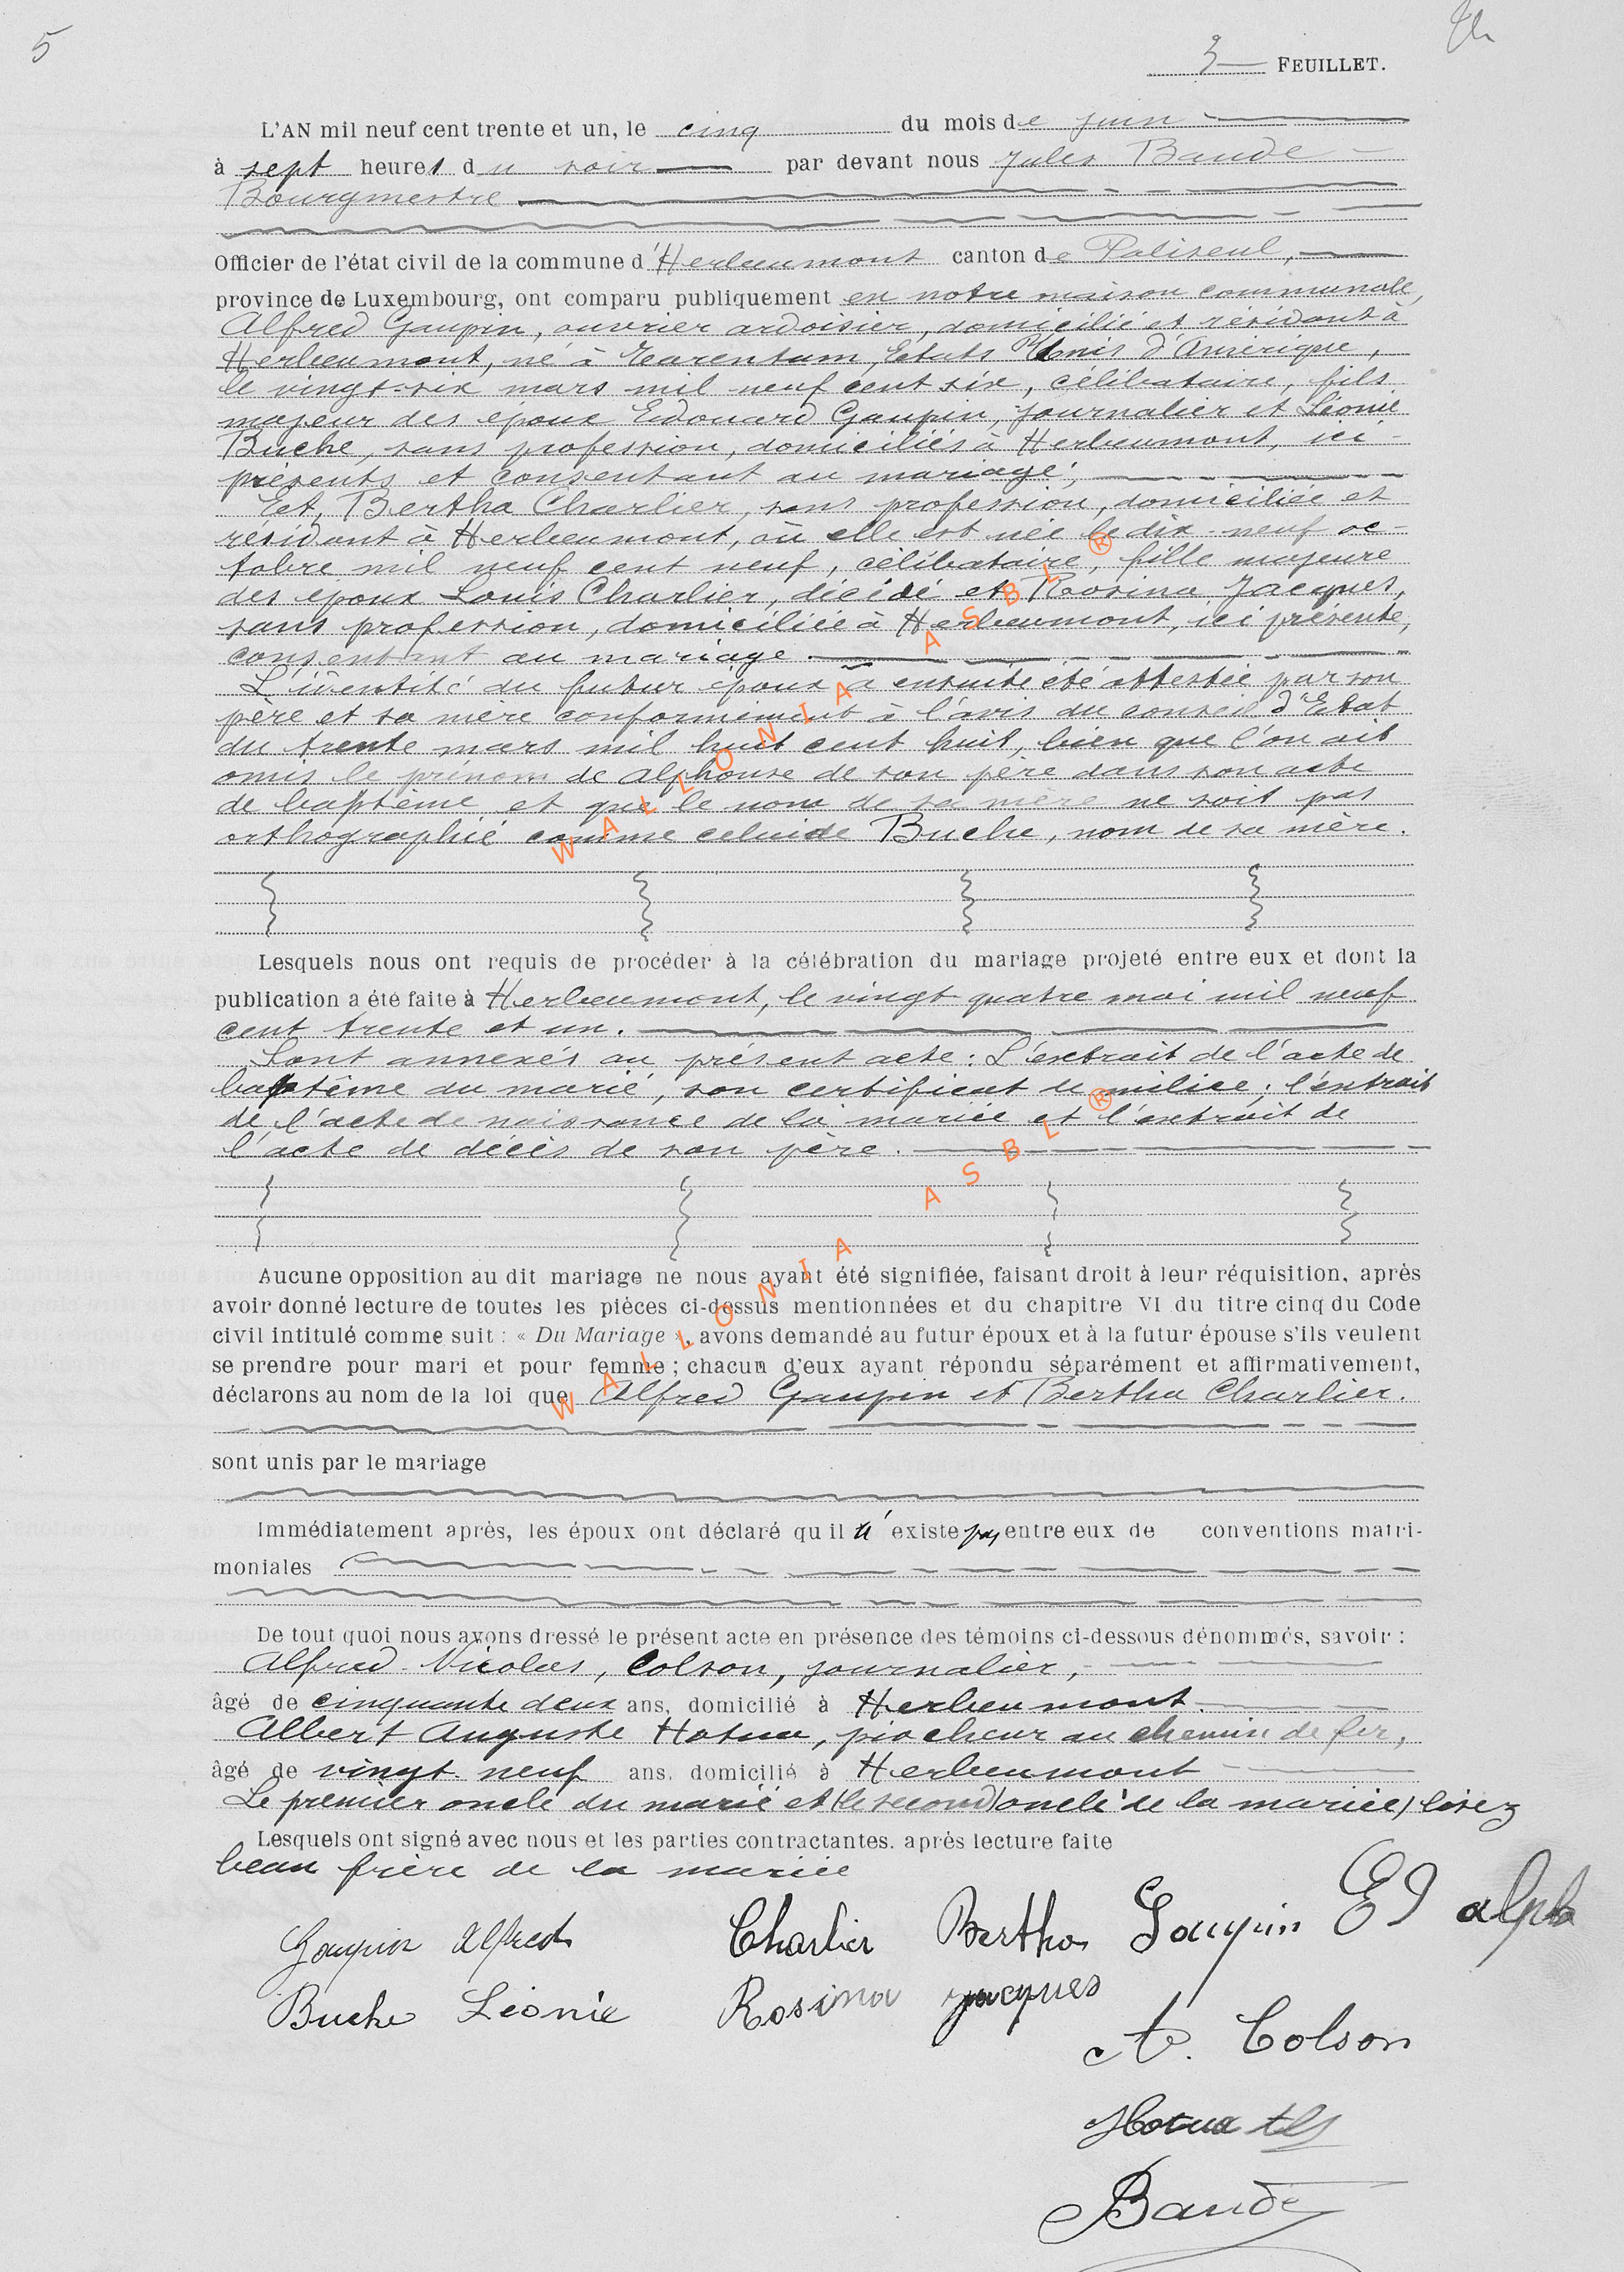 5
3 FEUILLET.
L'AN mil neuf cent trente et un, le cinq du mois de juin
à sept heures du soir par devant nous Jules Baude
Bourgmestre
Officier de l'état civil de la commune d'Herbeumont canton de Paliseul,
province de Luxembourg, ont comparu publiquement en notre maison communale,
Alfred Gaupin, ouvrier ardoisier, domicilié et résidant à
Herbeumont, né à Tarentum, Etats Unis d'Amérique,
le vingt-six mars mil neuf cent six, célibataire, fils
majeur des époux Edouard Gaupin, journalier et Léonie
Buche, sans profession, domiciliés à Herbeumont, ici
présents et consentant au mariage;
Et, Bertha Charlier, sans profession, domiciliée et
résidant à Herbeumont, où elle est née le dix-neuf oc-
tobre mil neuf cent neuf, célibataire, fille majeure
des époux Louis Charlier, décédé et Rosina Jacques,
sans profession, domiciliée à Herbeumont, ici présente,
consentant au mariage.
L'identité du futur époux a ensuite été attestée par son
père et sa mère conformément à l'avis du conseil d'Etat
du trente mars mil huit cent huit, bien que l'on ait
omis le prénom de Alphonse de son père dans son acte
de baptême et que le nom de sa mère ne soit pas
orthographié comme celui de Buche, nom de sa mère.
Lesquels nous ont requis de procéder à la célébration du mariage projeté entre eux et dont la
publication a été faite à Herbeumont, le vingt quatre mai mil neuf
cent trente et un.
Sont annexés au présent acte: L'extrait de l'acte de
baptême du marié, son certificat de milice; l'extrait
de l'acte de naissance de la mariée et l'extrait de
l'acte de décès de son père.
Aucune opposition au dit mariage ne nous ayant été signifiée, faisant droit à leur réquisition, après
avoir donné lecture de toutes les pièces ci-dessus mentionnées et du chapitre VI du titre cinq du Code
civil intitulé comme suit : « Du Mariage », avons demandé au futur époux et à la futur épouse s'ils veulent
se prendre pour mari et pour femme ; chacun d'eux ayant répondu séparément et affirmativement,
déclarons au nom de la loi que Alfred Gaupin et Bertha Charlier.
sont unis par le mariage
Immédiatement après, les époux ont déclaré qu'il n'existe pas entre eux de conventions matri-
moniales
De tout quoi nous avons dressé le présent acte en présence des témoins ci-dessous dénommés, savoir :
Alfred Nicolas, Colson, journalier,
âgé de cinquante deux ans, domicilié à Herbeumont
Albert Auguste Hotua, piocheur au chemin de fer,
âgé de vingt neuf ans, domicilié à Herbeumont
Le premier oncle du marié et (le second) oncle de la mariée) lisez
Lesquels ont signé avec nous et les parties contractantes, après lecture faite
beau frère de la mariée
Gaupin Alfred Charlier Bertha Gaupin Ed alph
Buche Léonie Rosina Jacques
A. Colson
Hotua
Baude
WALLONIA ASBL ®
WALLONIA ASBL ®